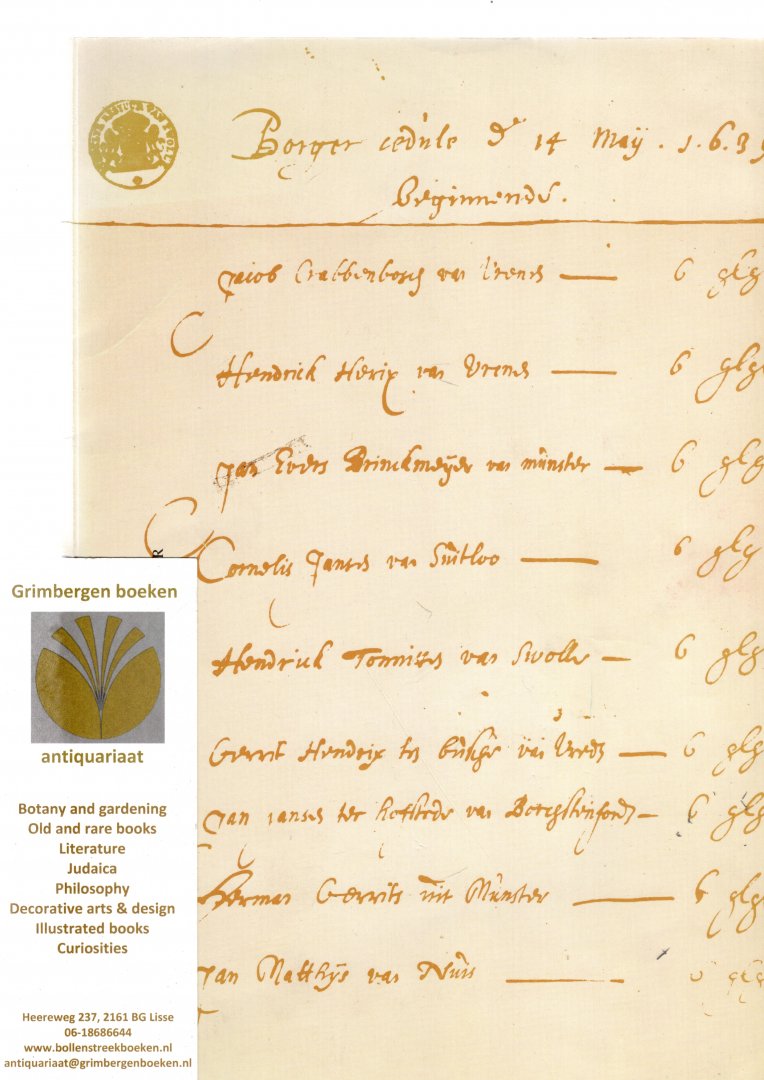 Borger cedule d 14 Maÿ . 1.6.39
Beginnende.
Jacob Crabbenbosch van Vrenes 6 glg
Hendrick Herix van Vrenes 6 glg
Jan Evers Brinckmeÿer van münster 6 glg
Cornelis Jansen van Süitloo 6 glg
Hendrick Tonnissen van Swolle 6 glg
Gerrit Hendrix ten büsche van Vreden 6 glg
Jan Jansen ter hofstede van Borchstenforde 6 glg
Herman Gerrits uit Münster 6 glg
Jan Matthÿs van Nüis 6 glg
R
Grimbergen boeken
antiquariaat
Botany and gardening
Old and rare books
Literature
Judaica
Philosophy
Decorative arts & design
Illustrated books
Curiosities
Heereweg 237, 2161 BG Lisse
06-18686644
www.bollenstreekboeken.nl
antiquariaat@grimbergenboeken.nl